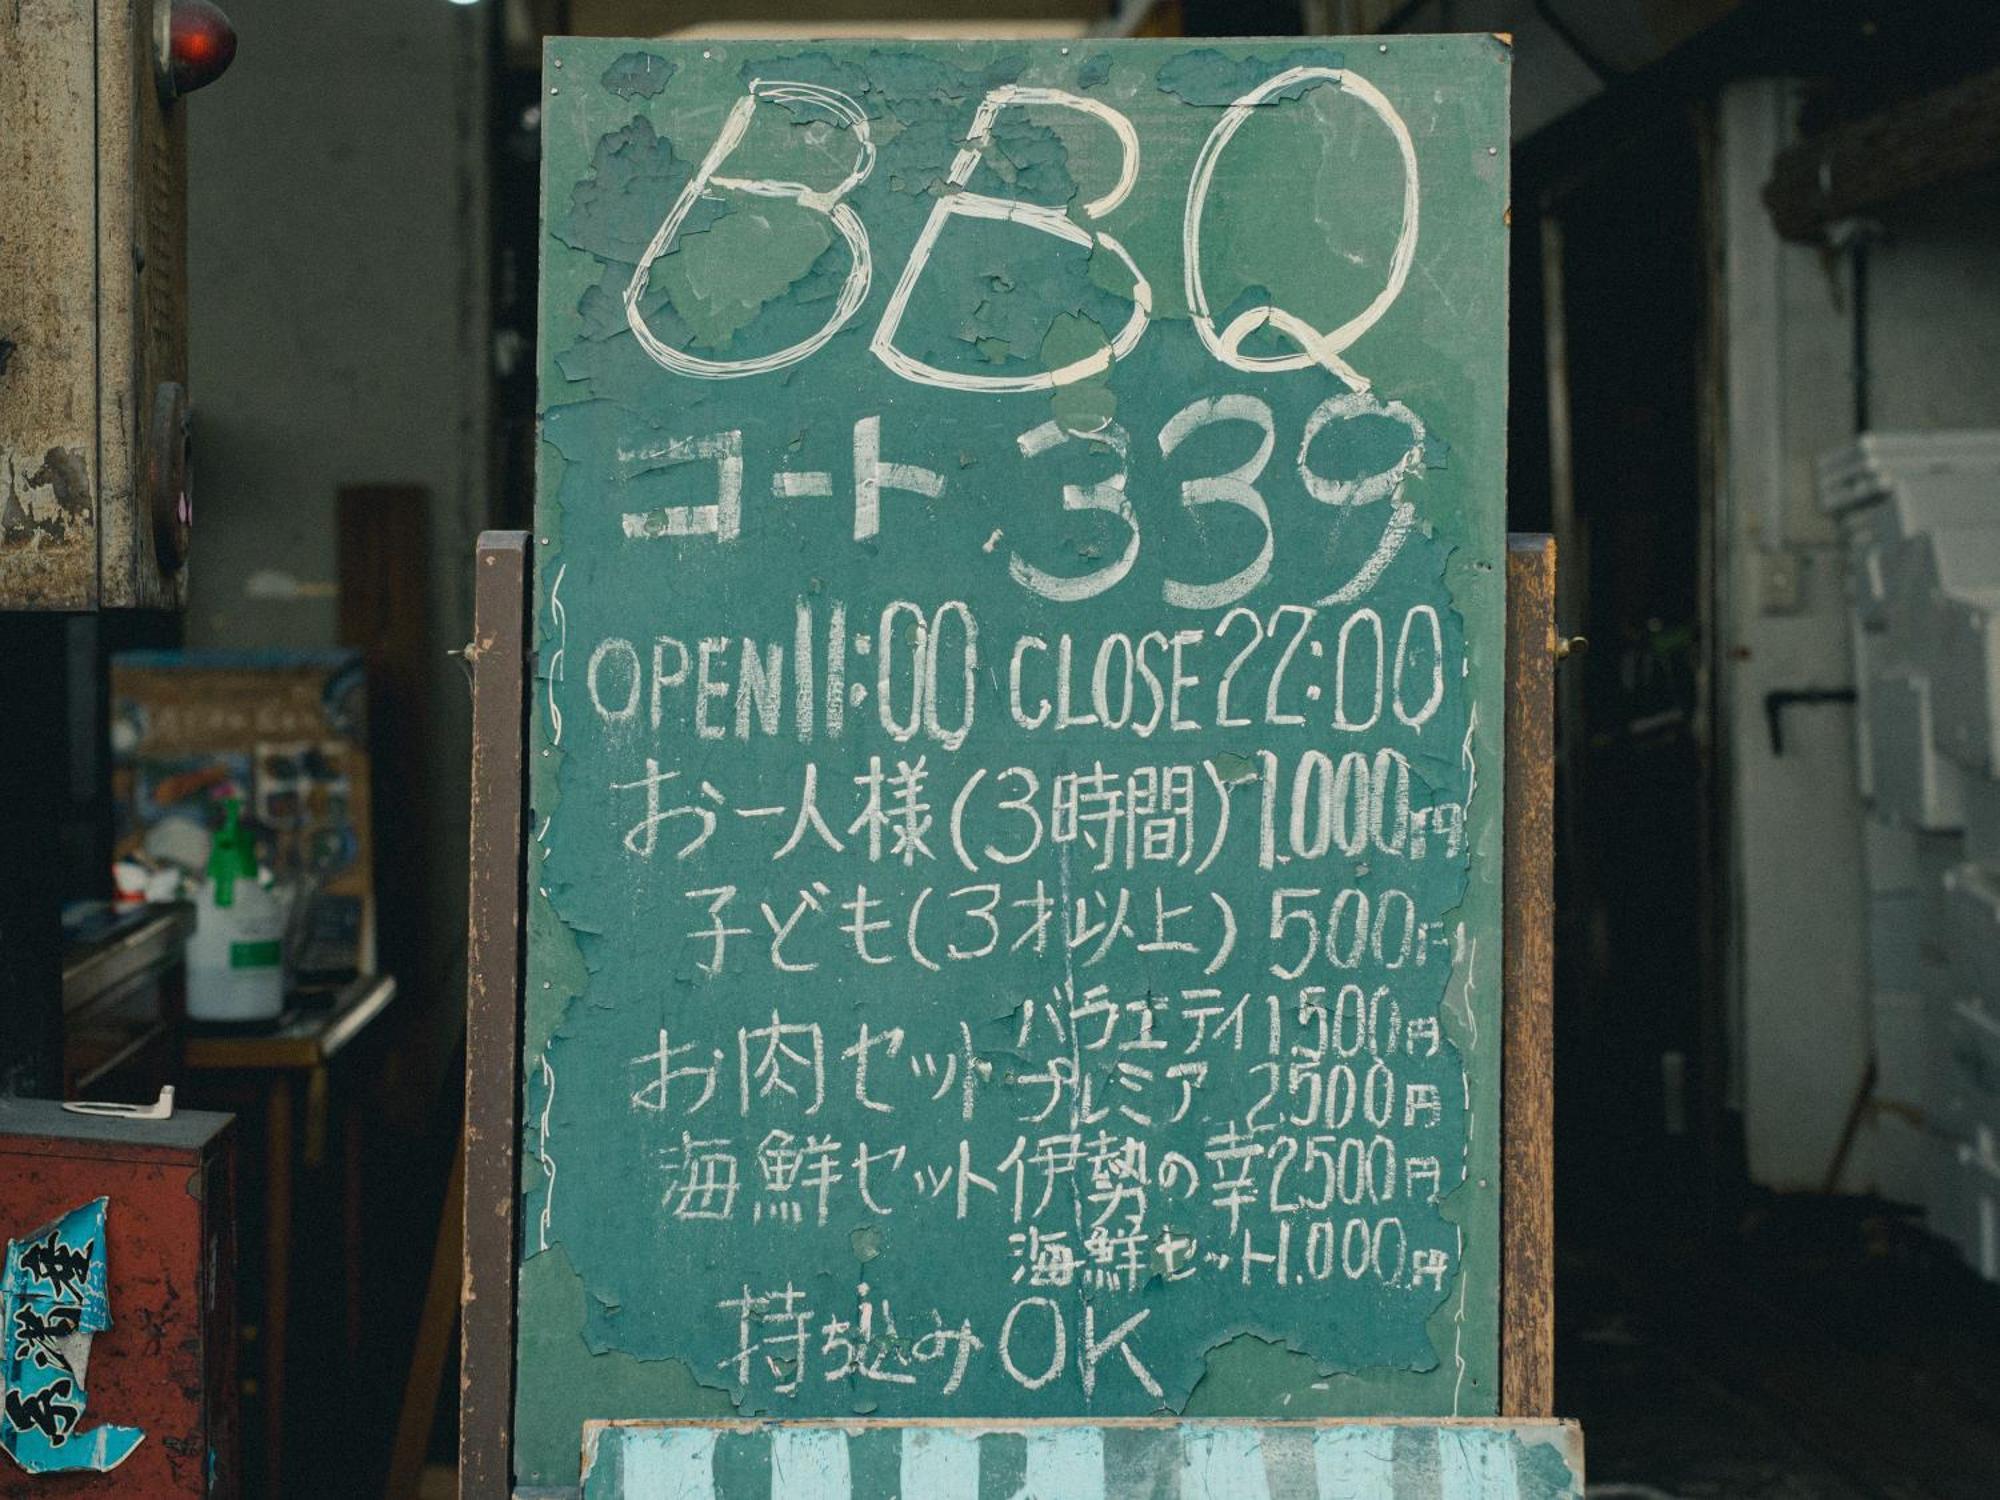 BBQ
コート 339
OPEN 11:00 CLOSE 22:00
お一人様(3時間) 1.000円
子ども(3才以上) 500円
お肉セット バラエティ 1500円
プレミア 2500円
海鮮セット 伊勢の幸 2500円
海鮮セット 1.000円
持ち込み OK